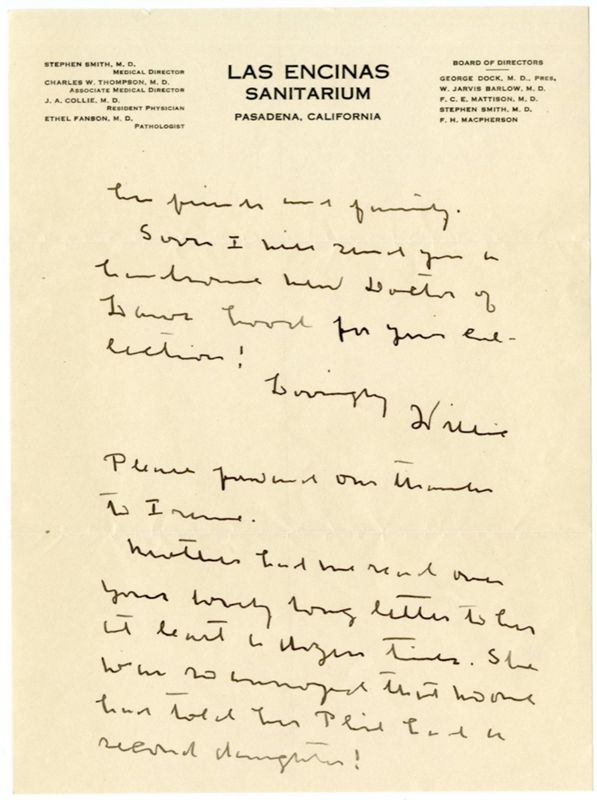 STEPHEN SMITH, M. D.
MEDICAL DIRECTOR
CHARLES W. THOMPSON, M. D.
ASSOCIATE MEDICAL DIRECTOR
J. A. COLLIE, M. D.
RESIDENT PHYSICIAN
ETHEL FANSON, M. D.
PATHOLOGIST
LAS ENCINAS
SANITARIUM
PASADENA, CALIFORNIA
BOARD OF DIRECTORS
GEORGE DOCK, M. D., PRES.
W. JARVIS BARLOW, M. D.
F. C. E. MATTISON, M. D.
STEPHEN SMITH, M. D.
F. H. MACPHERSON
her friends and family.
Soon I will send you a
handsome new Doctor of
Laws hood for your col-
lection!
Lovingly
Willie
Please forward our thanks
to Irene.
Mother had me read over
your lovely long letter to her
at least a dozen times. She
was so annoyed that no one
had told her Phil had a
second daughter!